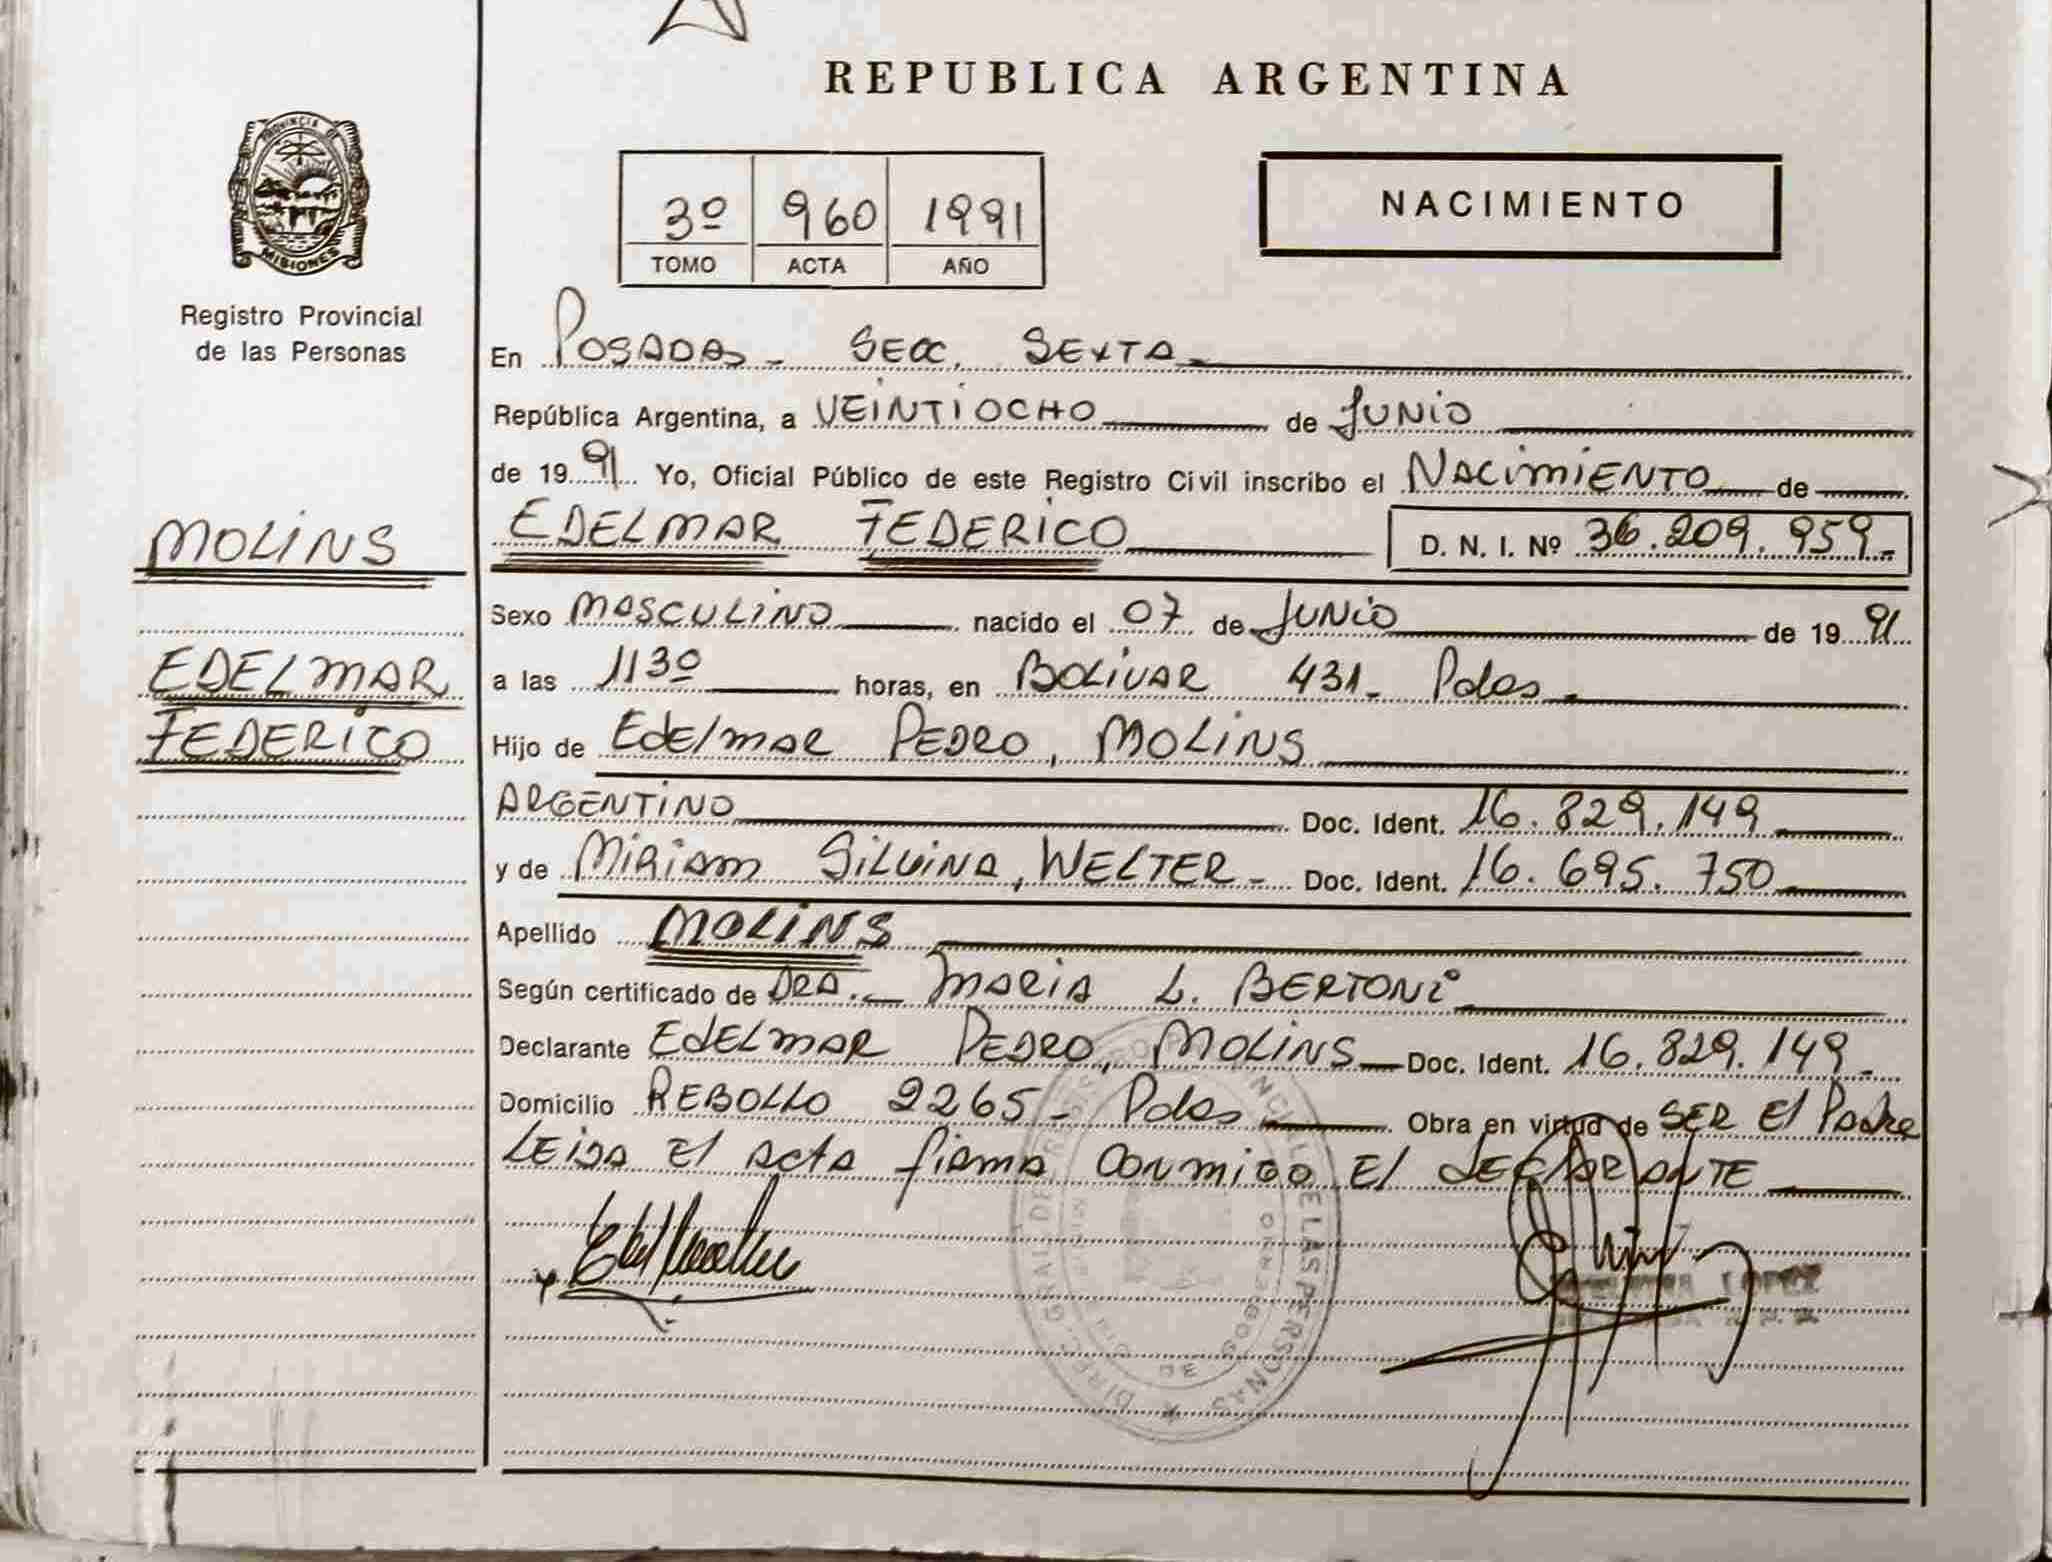 REPUBLICA ARGENTINA
PROVINCIA DE
MISIONES
Registro Provincial
de las Personas
3º 960 1991
TOMO ACTA AÑO
NACIMIENTO
En POSADAS - SECC. SEXTA
República Argentina, a VEINTIOCHO de JUNIO
de 1991 Yo, Oficial Público de este Registro Civil inscribo el NACIMIENTO de
EDELMAR FEDERICO D. N. I. Nº 36.209.959-
MOLINS
EDELMAR
FEDERICO
Sexo MASCULINO nacido el 07 de JUNIO de 1991
a las 1130 horas, en BOLIVAR 431- Pdas -
Hijo de EdElmAR PEDRO, MOLINS
ARGENTINO Doc. Ident. 16.829.149
y de MiRiAm SiLVinA, WELTER - Doc. Ident. 16.695.750
Apellido MOLINS
Según certificado de DRA. - MARIA L. BERTONi
Declarante EdELMAR PEDRO, MOLINS Doc. Ident. 16.829.149-
Domicilio REBOLLO 2265 - Pdas Obra en virtud de SER El PAdRe
LEIDA El ActA fiRmA CONMIGO El DECLARANTE
LOPEZ